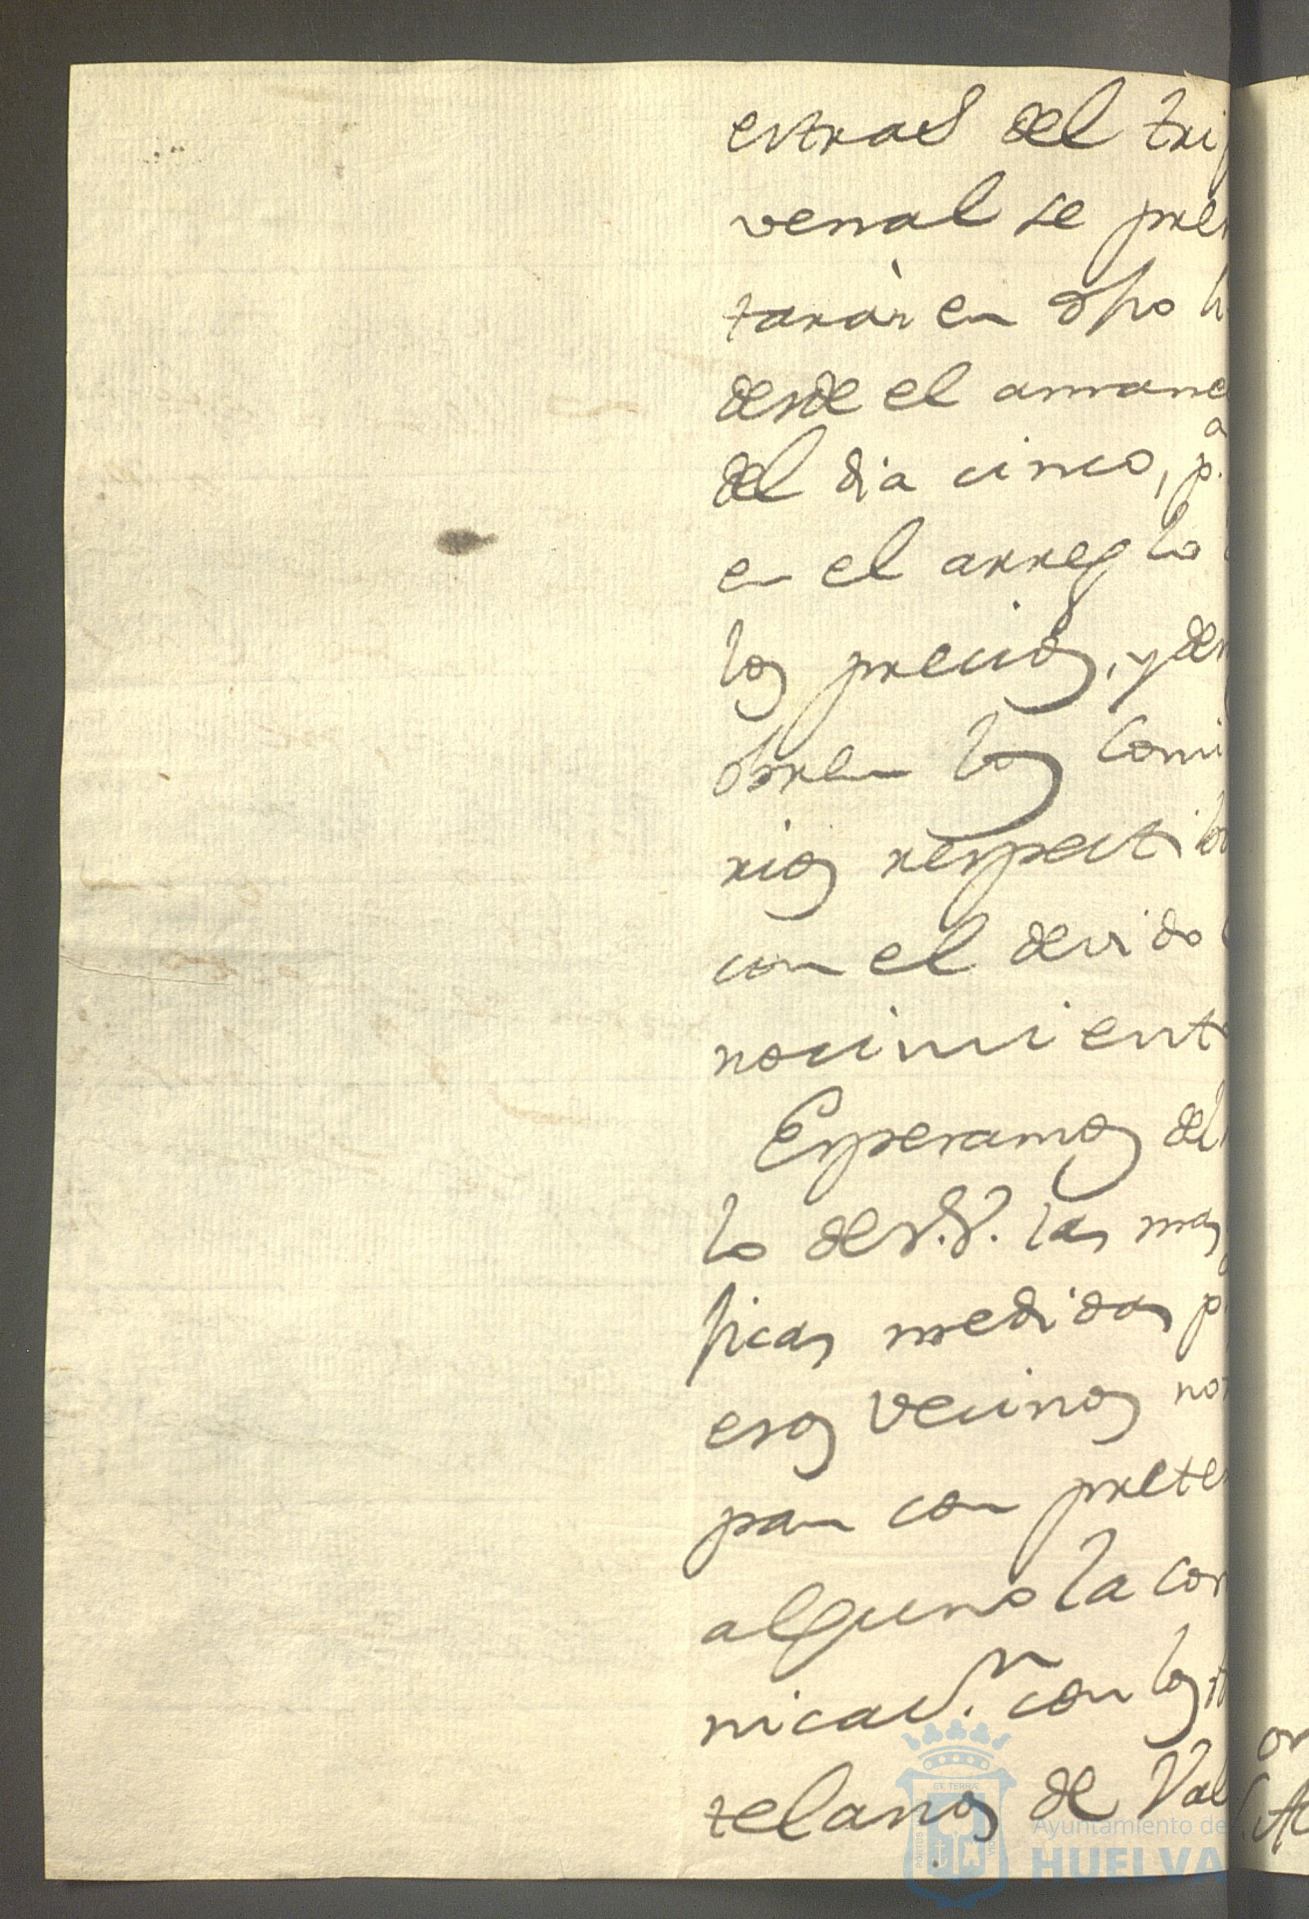 estras del tri
venal se pre
tarán en dho h
desde el amane
del dia cinco, p.a
en el arreglo
los precios, y de
obren los Comi
rios respectibo
con el devido
nocimiento
Esperamos del
lo de V.S. las mas
ficas medidas p
esos vecinos no
pan con prete
alguno la co
nicac.n con los
telanos de Val
Ayuntamiento de
HUELVA